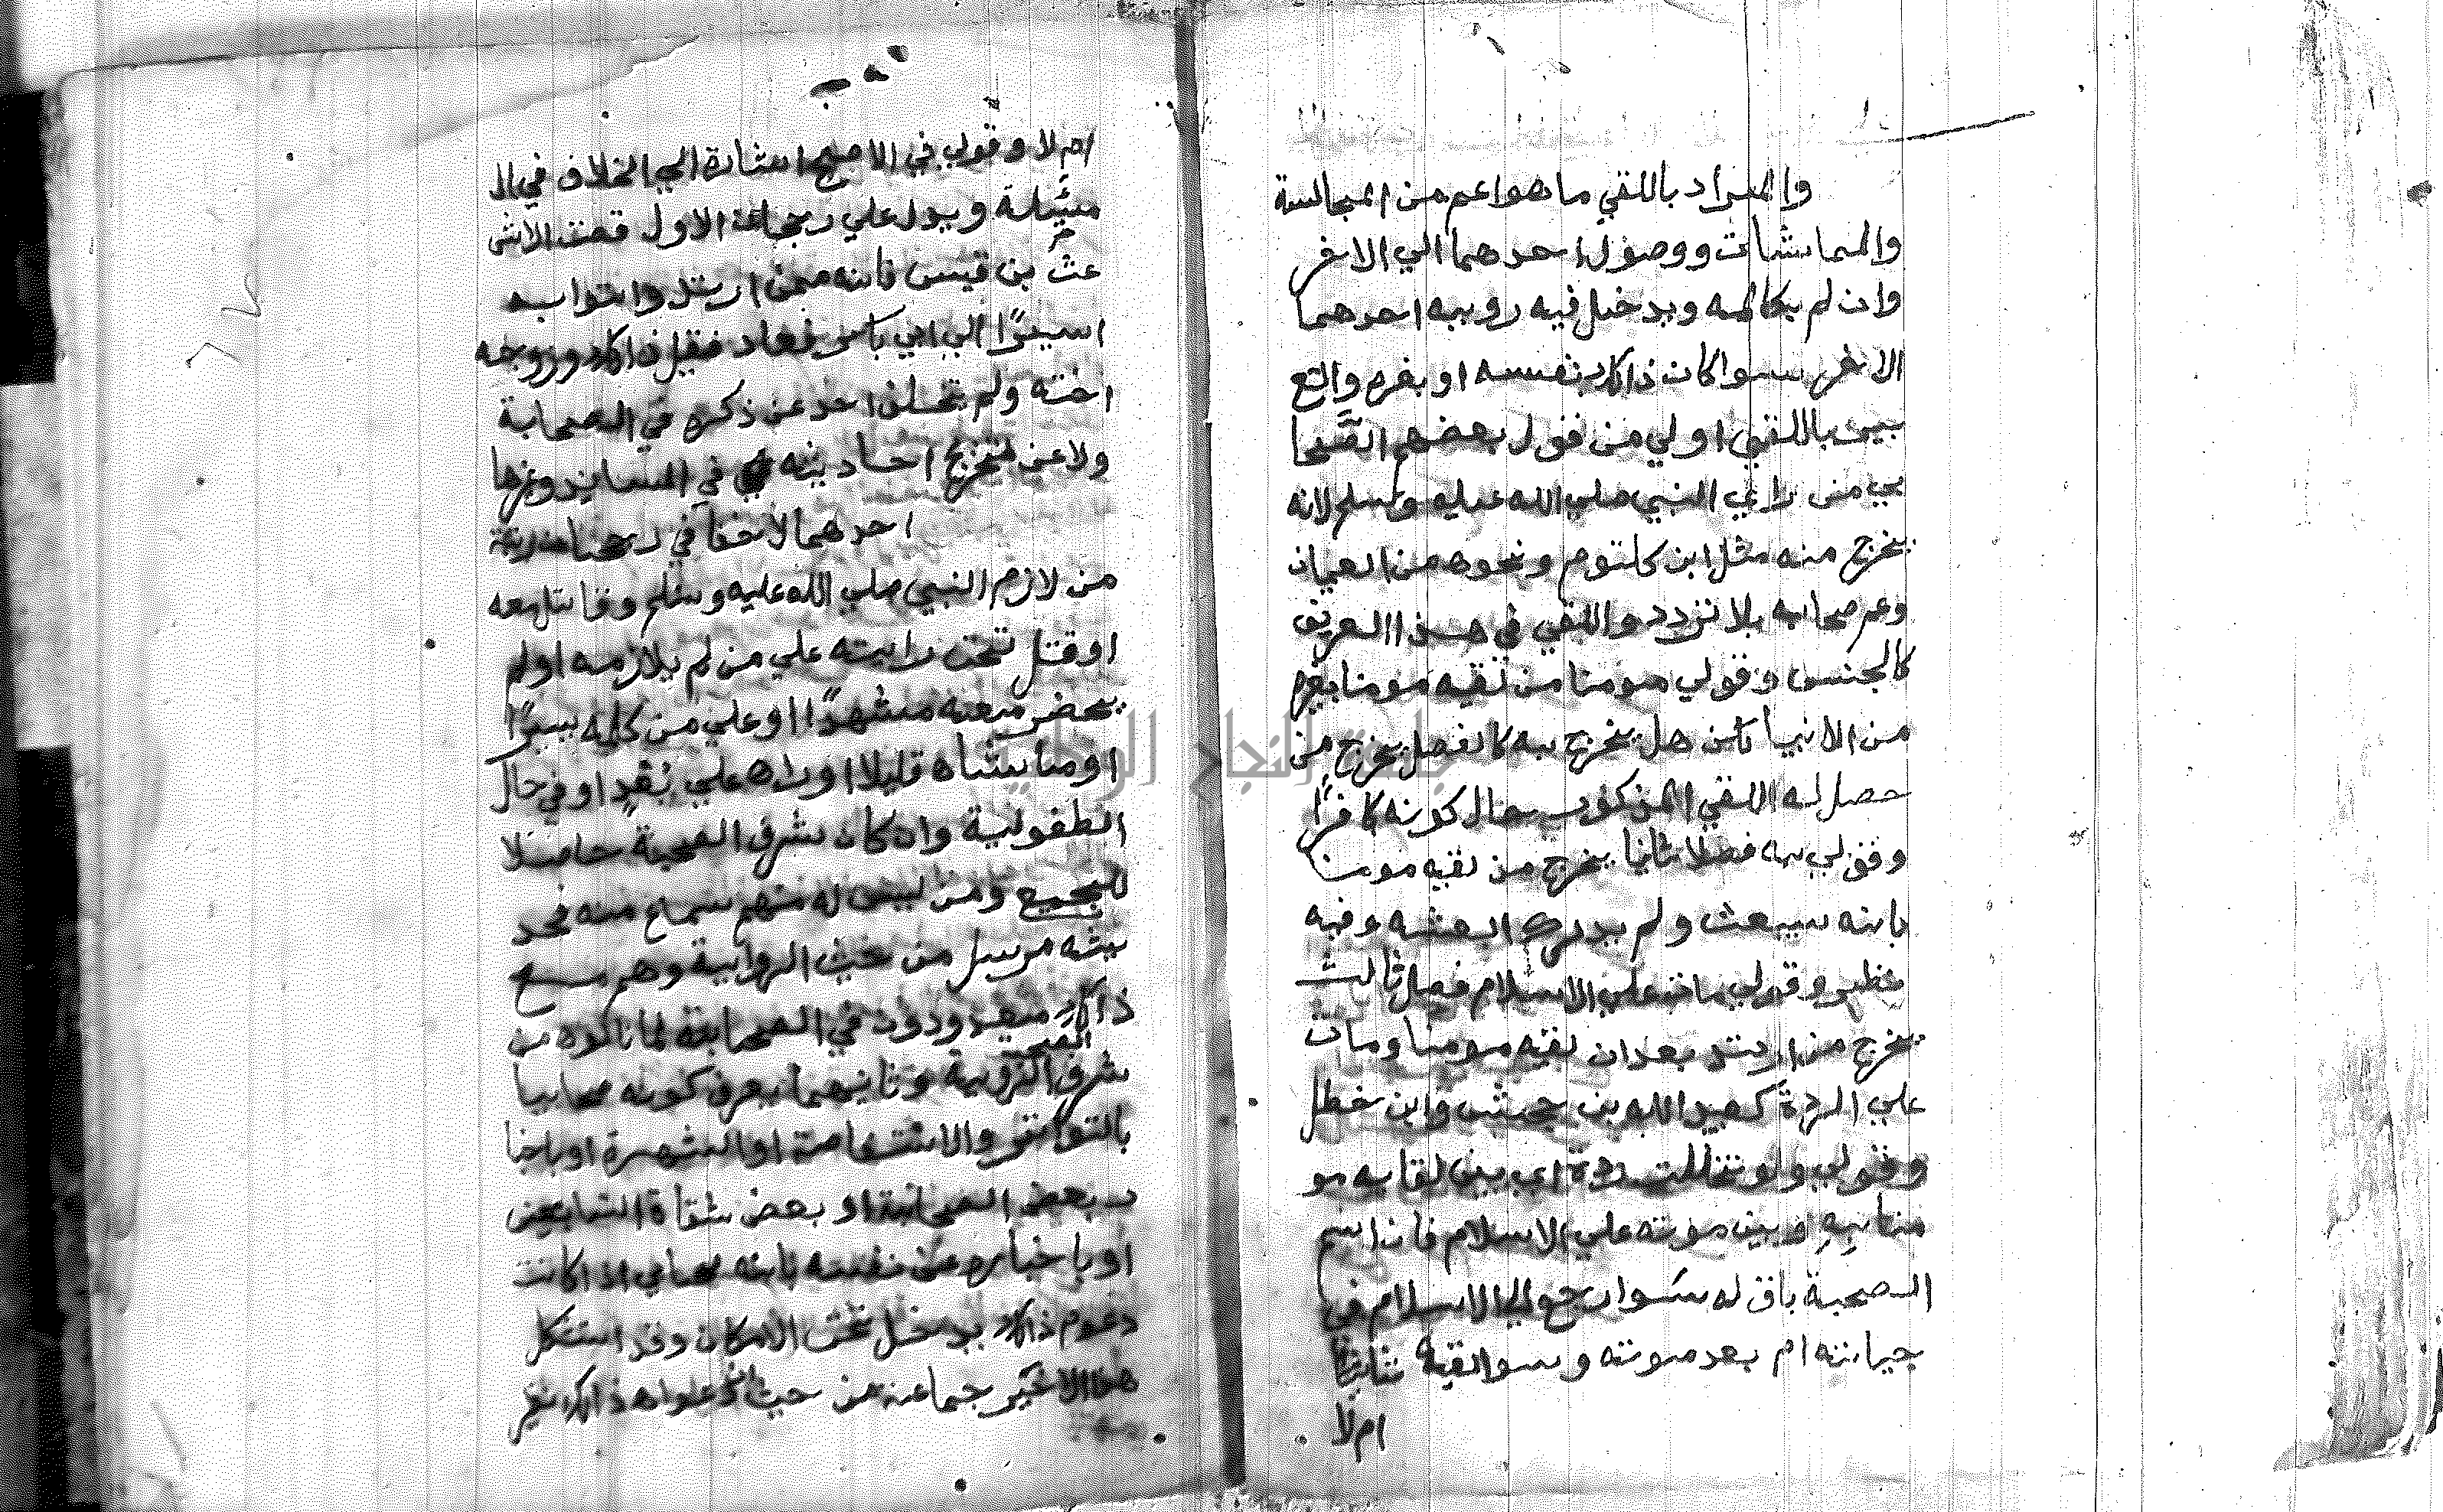 والمراد باللقي ما هو اعم من المجالسة
والمماشات ووصول احدهما الي الاخر
وان لم يكالمه ويدخل فيه رويه احدهما
الاخر سوا كان ذالك بنفسه او بغره والتع
بير باللقي اولي من قول بعضهم الصحا
بي من راي النبي صلي الله عليه وسلم لانه
يخرج منه مثل ابن كلتوم ونحوه من العميان
وهم صحابه بلا تردد واللقي في هذا التعريف
كالجنس وقولي مومنا من لقيه مومنا بغره
من الانبيا لكن هل يخرج به كالفصل يخرج من
حصل له اللقي المذكور حال كونه كافرًا
وقولي به فصلا ثانيا يخرج من لقيه مومنا
بانه سيبعث ولم يدرك البعثه وفيه
نظر وقولي مات علي الاسلام فصل ثالث
يخرج من ارتد بعد ان لقيه مومنا ومات
علي الردة كعبد الله بن جحش وابن خطل
وقولي ولو تخللت ردة اي بين لقايه مو
منا به وبين موته علي الاسلام فان اسم
الصحبة باق له سوا رجع الي الاسلام في
حياته ام بعد موته وسوا لقيه ثانيا
ام لا
ام لا وقولي في الاصح اشارة الي الخلاف في ال
مسيلة ويدل علي رجحان الاول قصة الاش
عث بن قيس فانه ممن ارتد واتوا به
اسيرًا الي ابي بكر فعاد فقبل ذالك وزوجه
اخته ولم يتخلف احد عن ذكره في الصحابة
ولا عن تخريج احاديثه في المسانيد وغيرها
احدهما لا خفا في رجحان رتبة
من لازم النبي صلي الله عليه وسلم وقاتل معه
او قتل تحت رايته علي من لم يلازمه او لم
يحضر معه مشهدًا او علي من كلمه يسيرًا
او ماشاه قليلا او راه علي بُعْدٍ او في حال
الطفولية وان كان شرف الصحبة حاصلا
للجميع ومن ليس له منهم سماع منه فحد
يثه مرسل من حيث الرواية وهم مع
ذالك معدودون في الصحابة لما نالوه من
شرف الروية وثانيهما يعرف كونه صحابيا
بالتواتر والاستفاضة او الشهرة او باخبا
ر بعض الصحابة او بعض ثقاة التابعين
او باخباره عن نفسه بانه صحابي اذا كانت
دعوه ذالك يدخل تحت الامكان وقد استشكل
هذا الاخير جماعة من حيث ان دعواه ذالك نظير